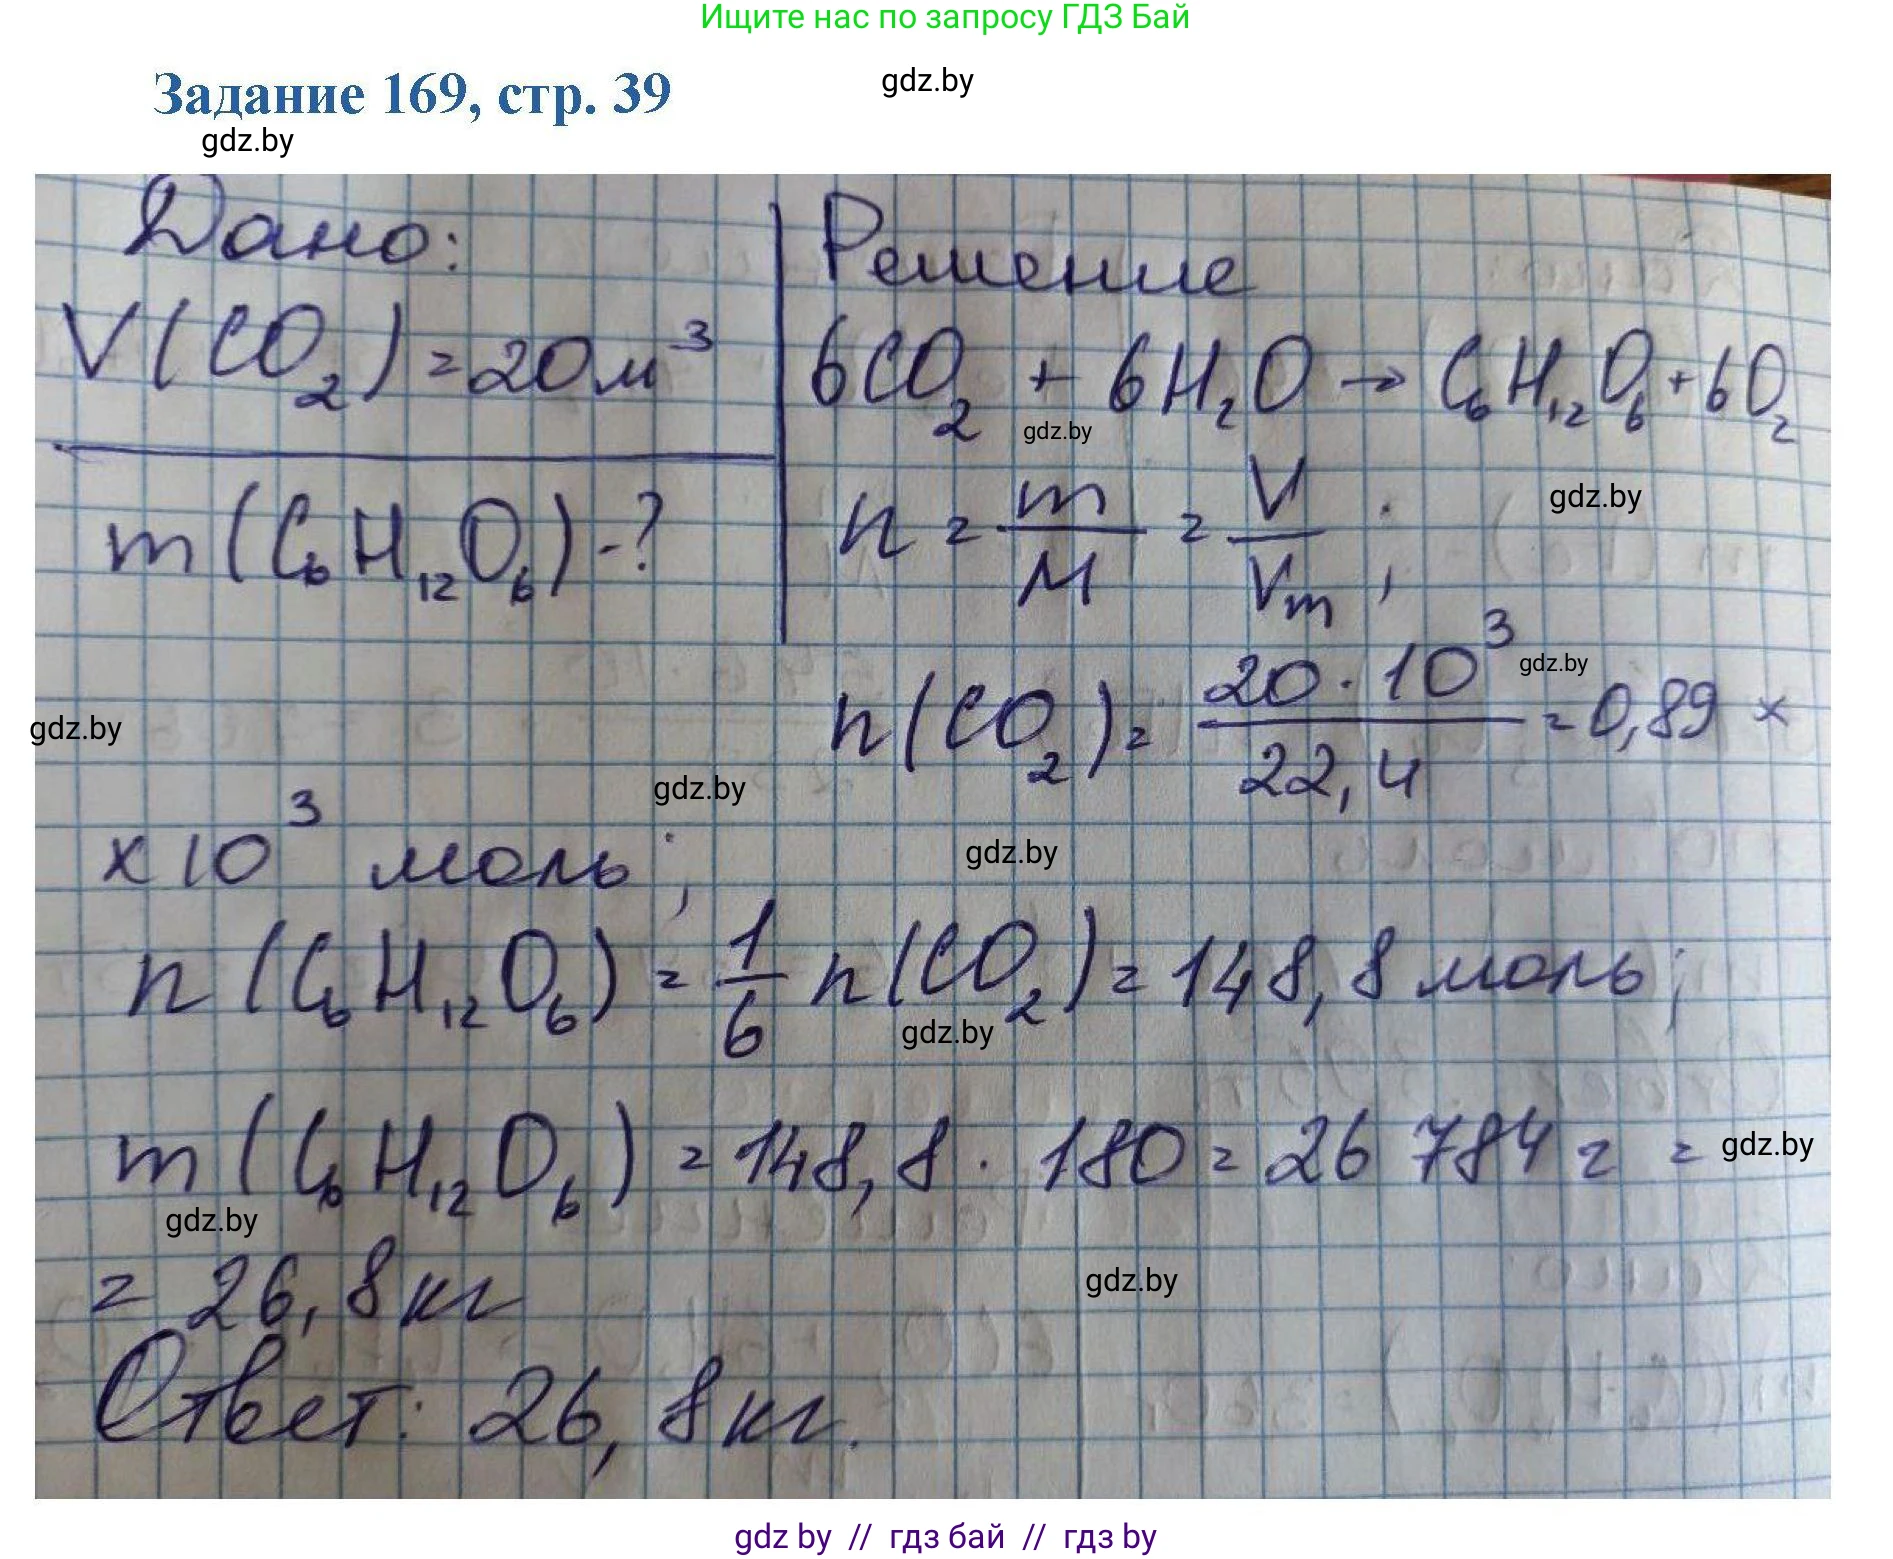 Ищите нас по запросу ГДЗ Бай
Задание 169, стр. 39
gdz.by
gdz.by
Дано:
V(CO₂) = 20 м³
m(C₆H₁₂O₆) - ?
Решение
6CO₂ + 6H₂O → C₆H₁₂O₆ + 6O₂
gdz.by
n = m/M = V/Vm ;
gdz.by
n(CO₂) = 20 · 10³ / 22,4 = 0,89 ×
gdz.by
gdz.by
gdz.by
× 10³ моль ;
gdz.by
n(C₆H₁₂O₆) = 1/6 n(CO₂) = 148,8 моль ;
gdz.by
m(C₆H₁₂O₆) = 148,8 · 180 = 26 784 г =
gdz.by
gdz.by
= 26,8 кг
gdz.by
Ответ: 26,8 кг.
gdz by // гдз бай // гдз by